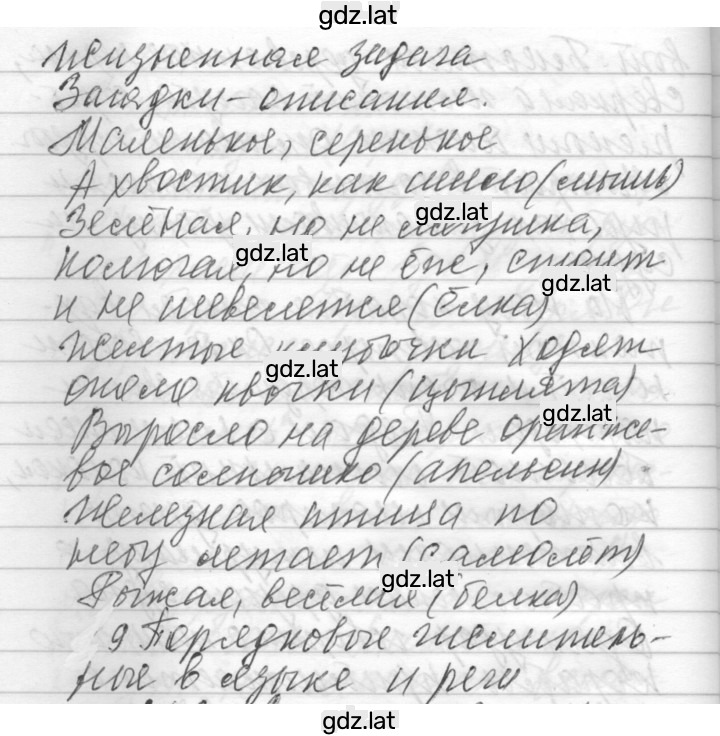 gdz.lat
Жизненная задача
Загадки-описания.
Маленькое, серенькое
А хвостик, как шило (мышь)
Зелёная, но не лягушка,
gdz.lat
gdz.lat
Колючая, но не ёж, стоит
gdz.lat
и не шевелется (ёлка)
Желтые клубочки ходят
gdz.lat
около квочки (цыплята)
gdz.lat
Выросло на дереве оранже-
вое солнышко (апельсин).
Железная птица по
небу летает (самолёт)
gdz.lat
Рыжая, весёлая (белка)
9 Порядковые числитель-
ные в языке и речи
gdz.lat